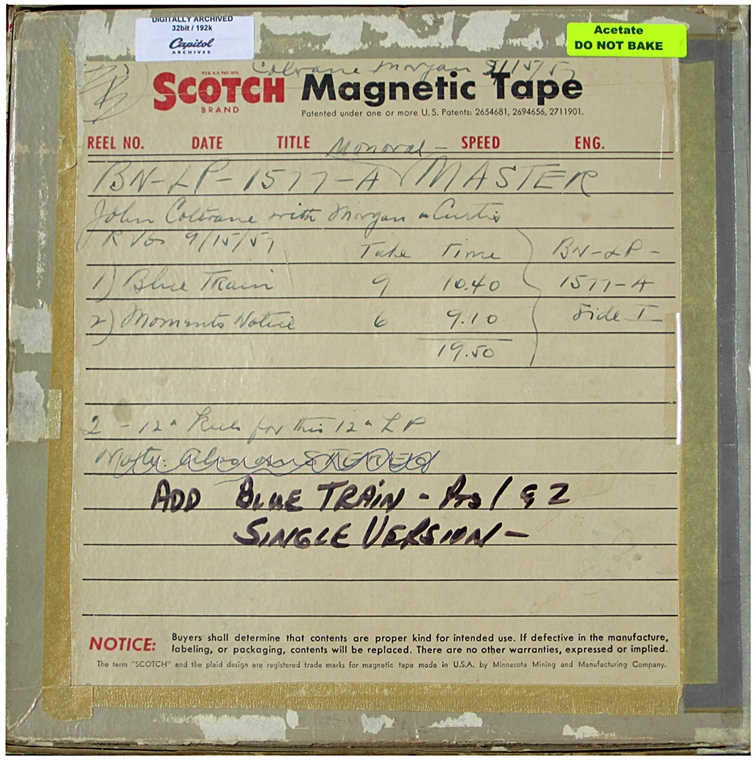 DIGITALLY ARCHIVED
32bit / 192k
Capitol
ARCHIVES
Acetate
DO NOT BAKE
Coltrane Morgan 9/15/57
SCOTCH Magnetic Tape
BRAND
Patented under one or more U.S. Patents: 2654681, 2694656, 2711901.
REEL NO. DATE TITLE SPEED ENG.
Monoral -
BN-LP-1577-A MASTER
John Coltrane with Morgan + Curtis
RVG 9/15/57 Take Time BN-LP-
1) Blue Train 9 10.40 1577-A
2) Moments Notice 6 9.10 Side I
19.50
2 - 12" Reels for this 12" LP
ADD BLUE TRAIN - Pts 1 & 2
SINGLE VERSION -
NOTICE: Buyers shall determine that contents are proper kind for intended use. If defective in the manufacture,
labeling, or packaging, contents will be replaced. There are no other warranties, expressed or implied.
The term "SCOTCH" and the plaid design are registered trade marks for magnetic tape made in U.S.A. by Minnesota Mining and Manufacturing Company.